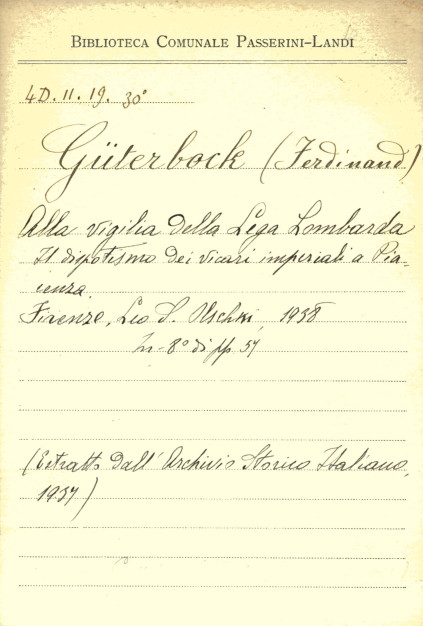 BIBLIOTECA COMUNALE PASSERINI-LANDI
4D. 11. 19. 30°
Güterbock (Ferdinand)
Alla vigilia della Lega Lombarda
Il dispotismo dei vicari imperiali a Pia=
cenza.
Firenze, Leo S. Olschki, 1938
In-8° di pp 57
(Estratto dall'Archivio Storico Italiano,
1937)